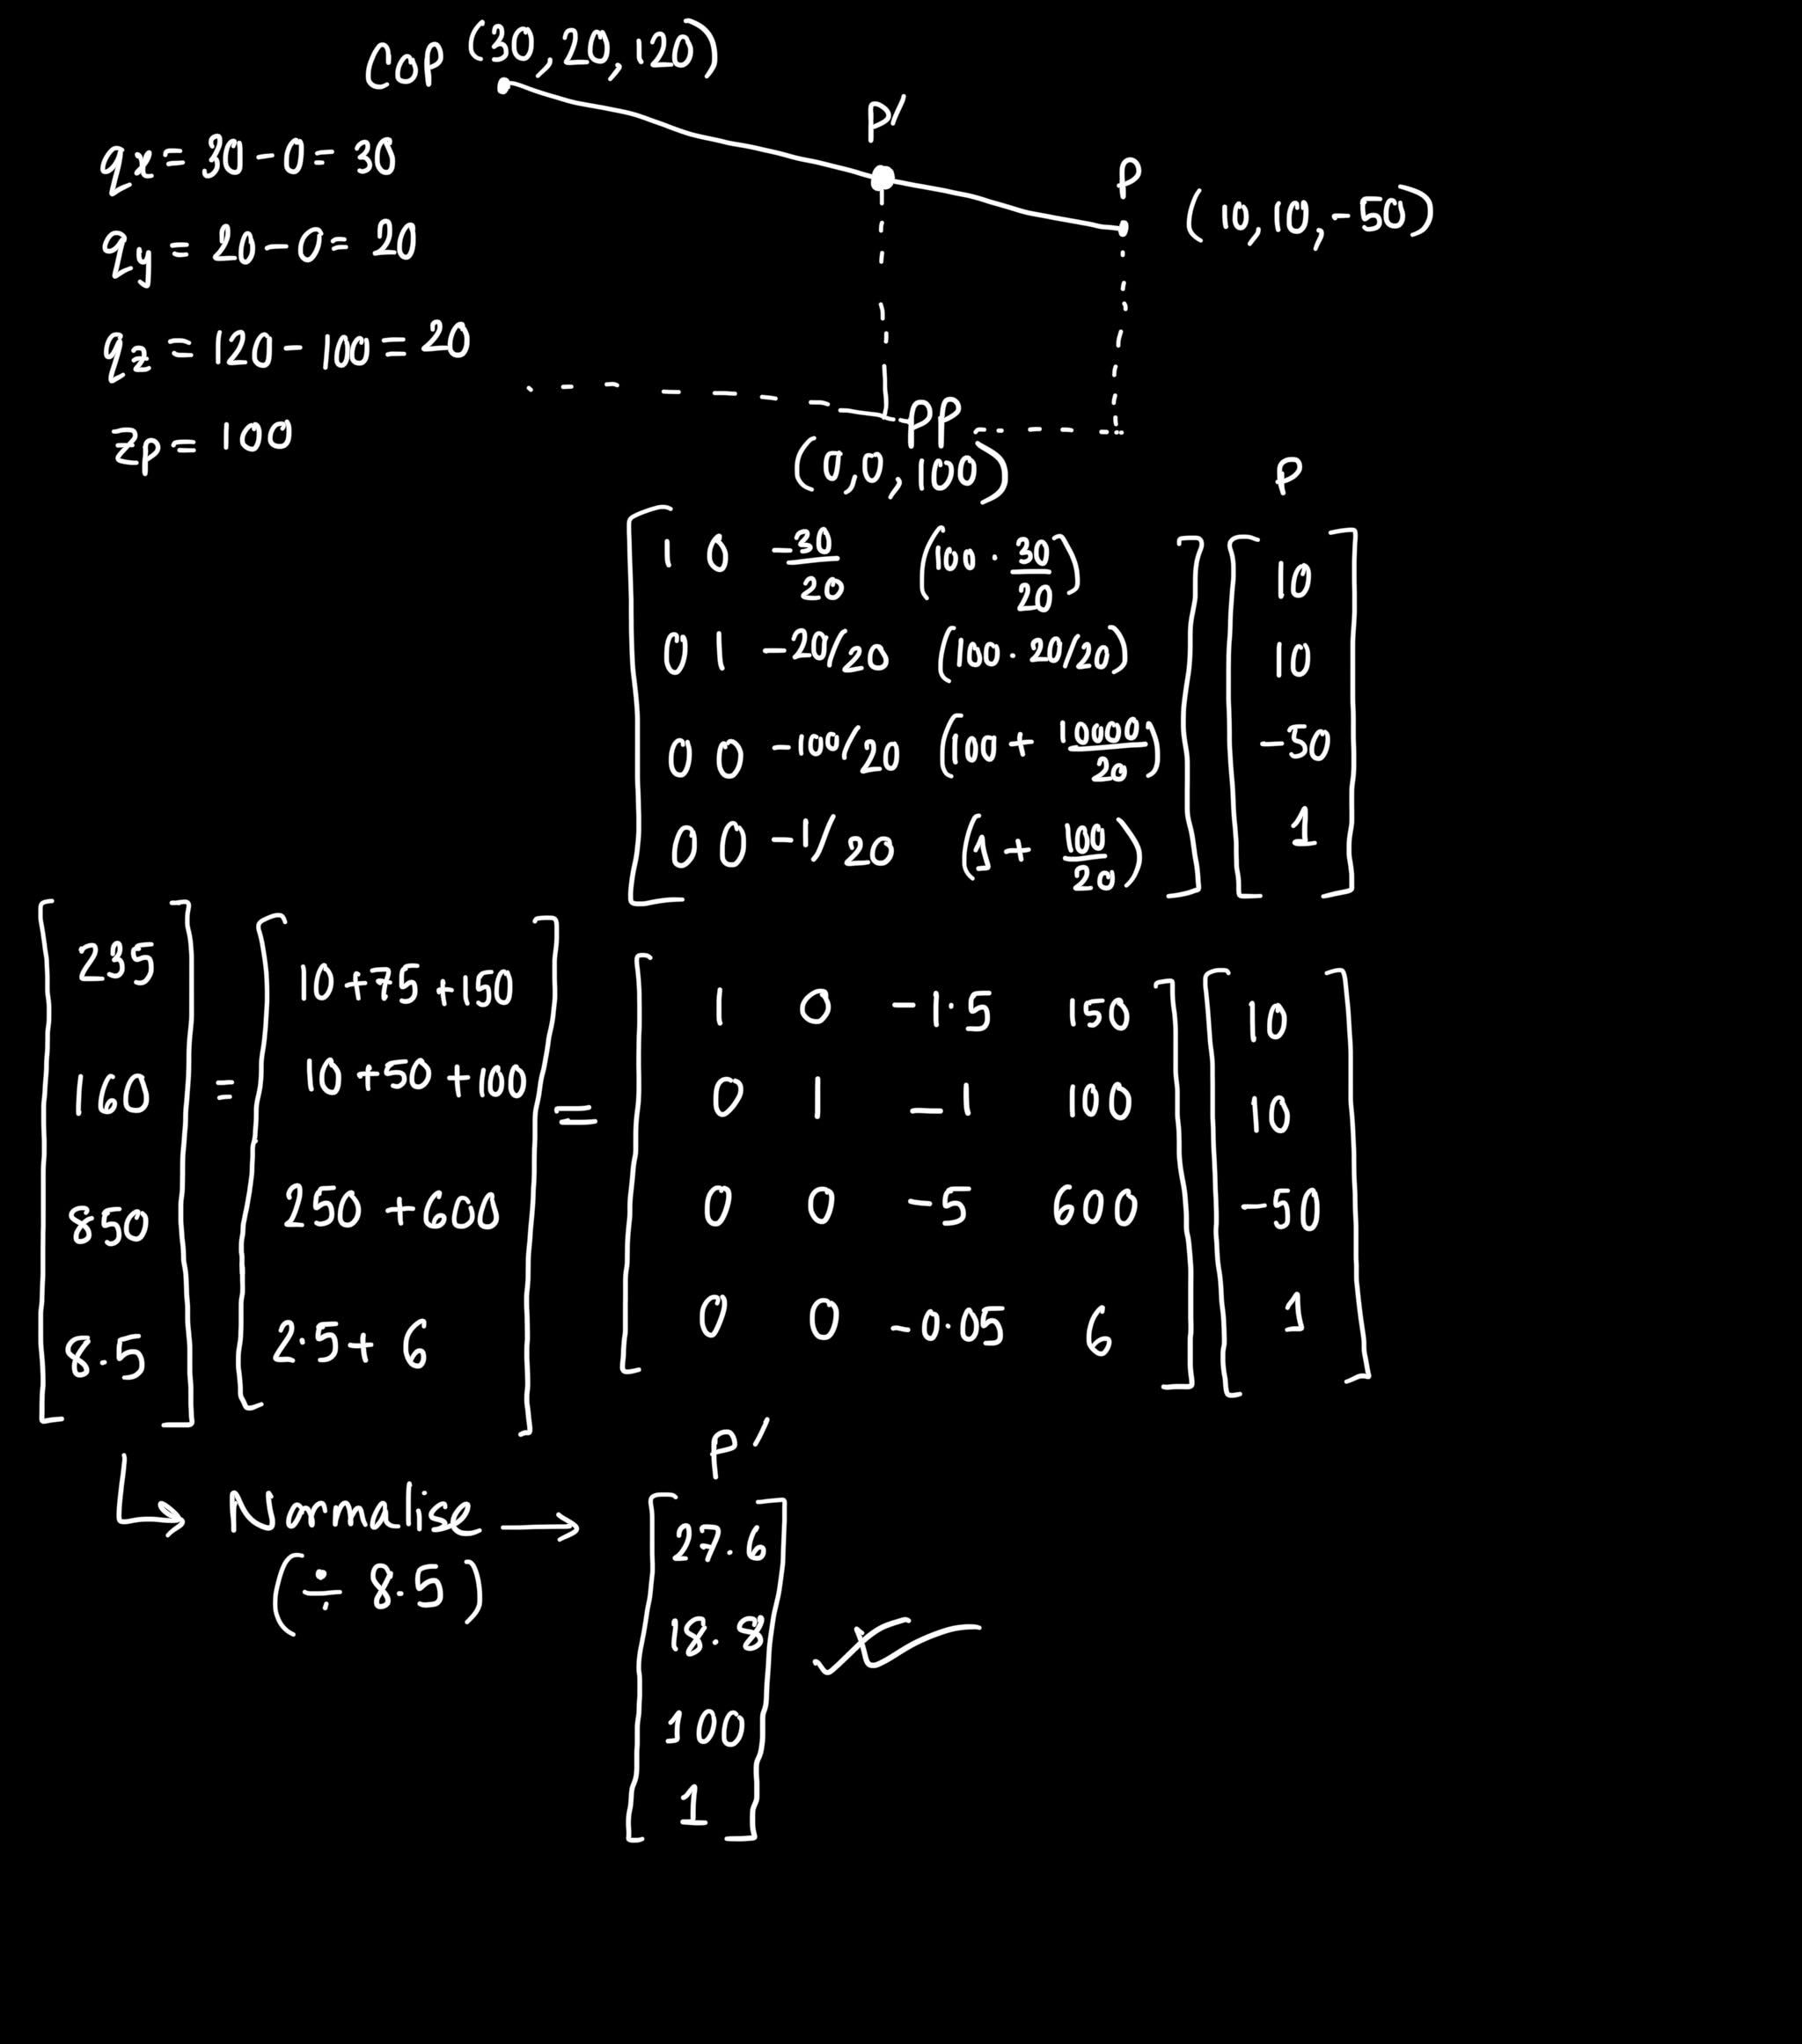 COP (30, 20, 120)
P'
P
(10, 10, -50)
qx = 30 - 0 = 30
qy = 20 - 0 = 20
qz = 120 - 100 = 20
zp = 100
PP
(0, 0, 100)
P
[ 1 0 -30/20 (100 · 30/20) ] [ 10 ]
[ 0 1 -20/20 (100 · 20/20) ] [ 10 ]
[ 0 0 -100/20 (100 + 10000/20) ] [ -50 ]
[ 0 0 -1/20 (1 + 100/20) ] [ 1 ]
[ 235 ] [ 10 + 75 + 150 ] [ 1 0 -1.5 150 ] [ 10 ]
[ 160 ] = [ 10 + 50 + 100 ] = [ 0 1 -1 100 ] [ 10 ]
[ 850 ] [ 250 + 600 ] [ 0 0 -5 600 ] [ -50 ]
[ 8.5 ] [ 2.5 + 6 ] [ 0 0 -0.05 6 ] [ 1 ]
↳ Normalise →
(÷ 8.5)
P'
[ 27.6 ]
[ 18.8 ]
[ 100 ]
[ 1 ]